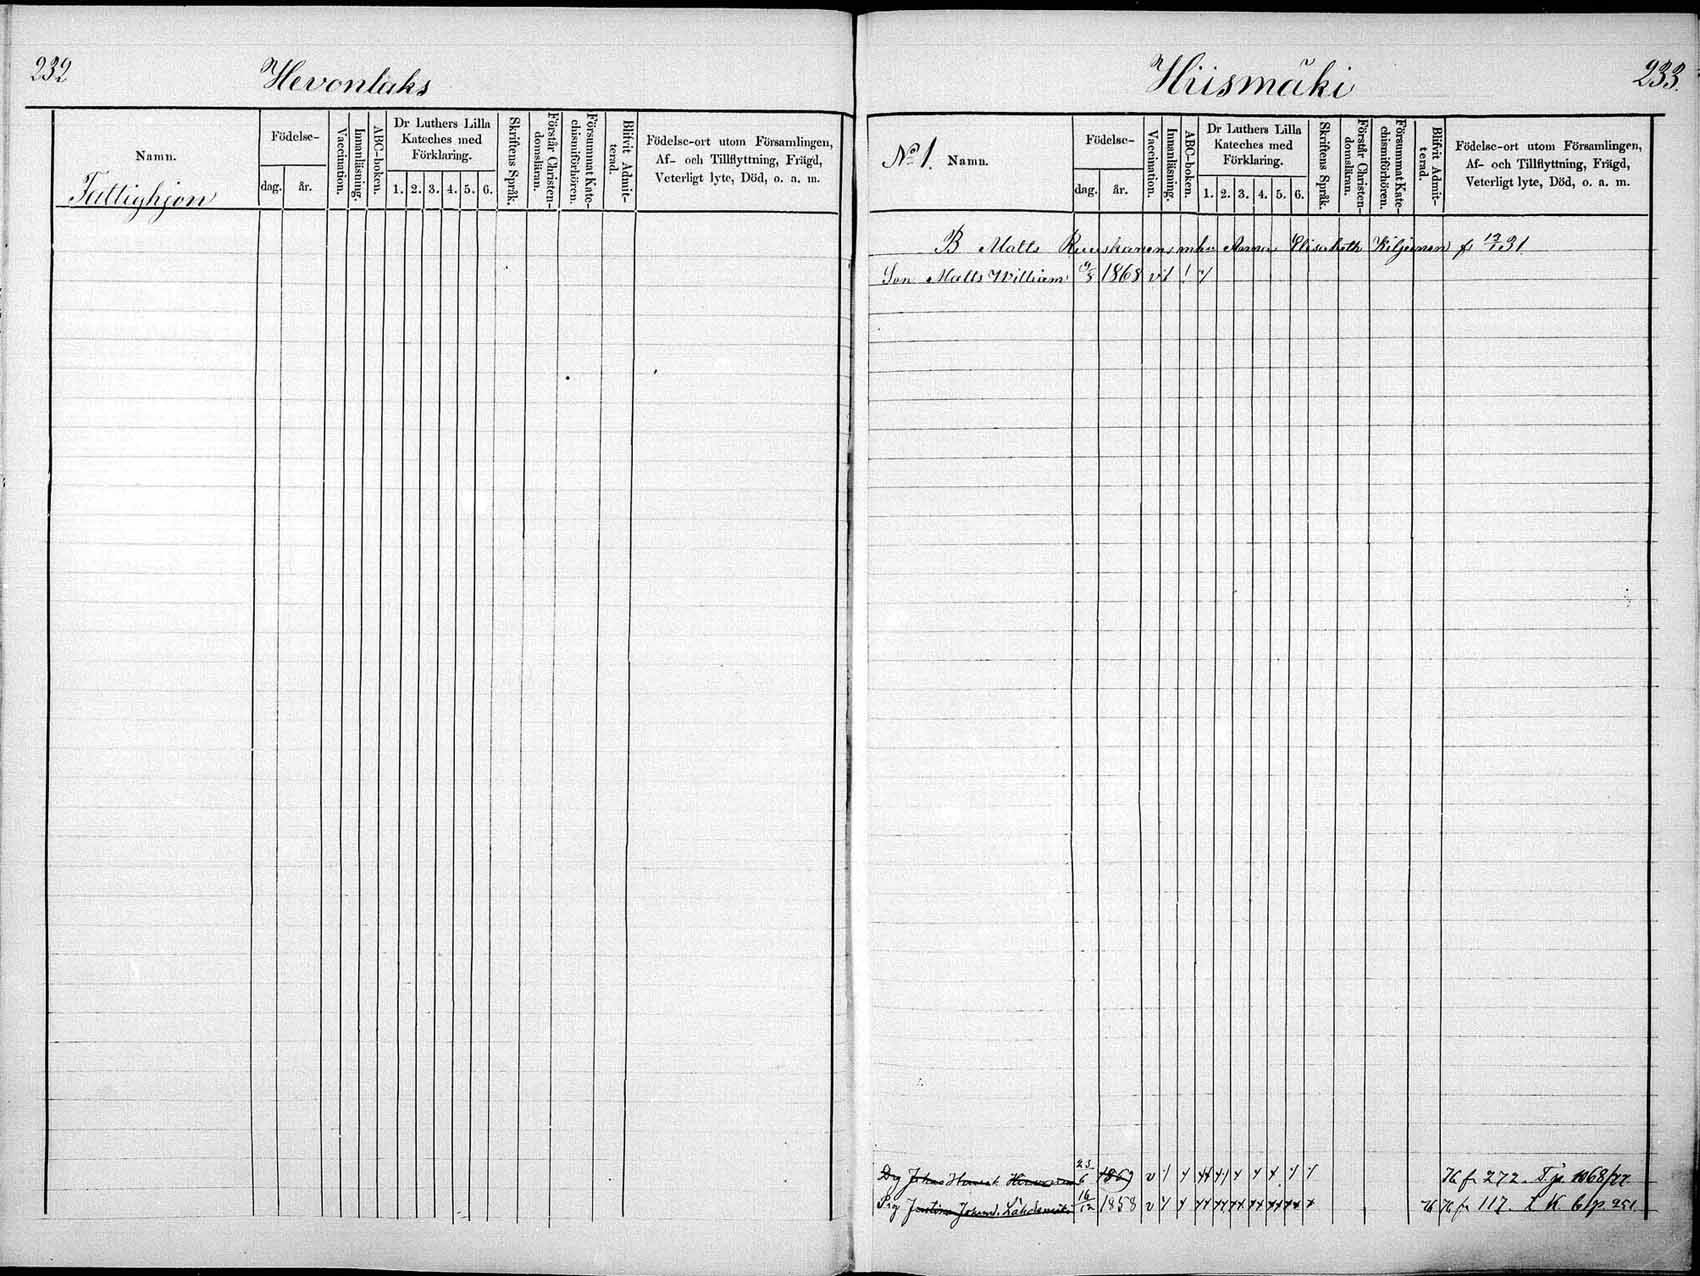 232
Hevonlaks
Namn.
Fattighjon
Födelse-
dag. år.
Vaccination.
Innanläsning.
ABC-boken.
Dr Luthers Lilla
Kateches med
Förklaring.
1. 2. 3. 4. 5. 6.
Skriftens Språk.
Förstår Christen-
domsläran.
Försummat Kate-
chismiförhören.
Blifvit Admit-
terad.
Födelse-ort utom Församlingen,
Af- och Tillflyttning, Frägd,
Veterligt lyte, Död, o. a. m.
Hiismäki
233.
No 1. Namn.
Födelse-
dag. år.
Vaccination.
Innanläsning.
ABC-boken.
Dr Luthers Lilla
Kateches med
Förklaring.
1. 2. 3. 4. 5. 6.
Skriftens Språk.
Förstår Christen-
domsläran.
Försummat Kate-
chismiförhören.
Blifvit Admit-
terad.
Födelse-ort utom Församlingen,
Af- och Tillflyttning, Frägd,
Veterligt lyte, Död, o. a. m.
B Matts Ruuskanens enka Anna Elisabeth Kiljunen f. 31
Son Matts William 1868
Drg Johan 23/6 76 fr 272.
Pig Johand. 16/12 1858 76 fr 117. L K p. 251